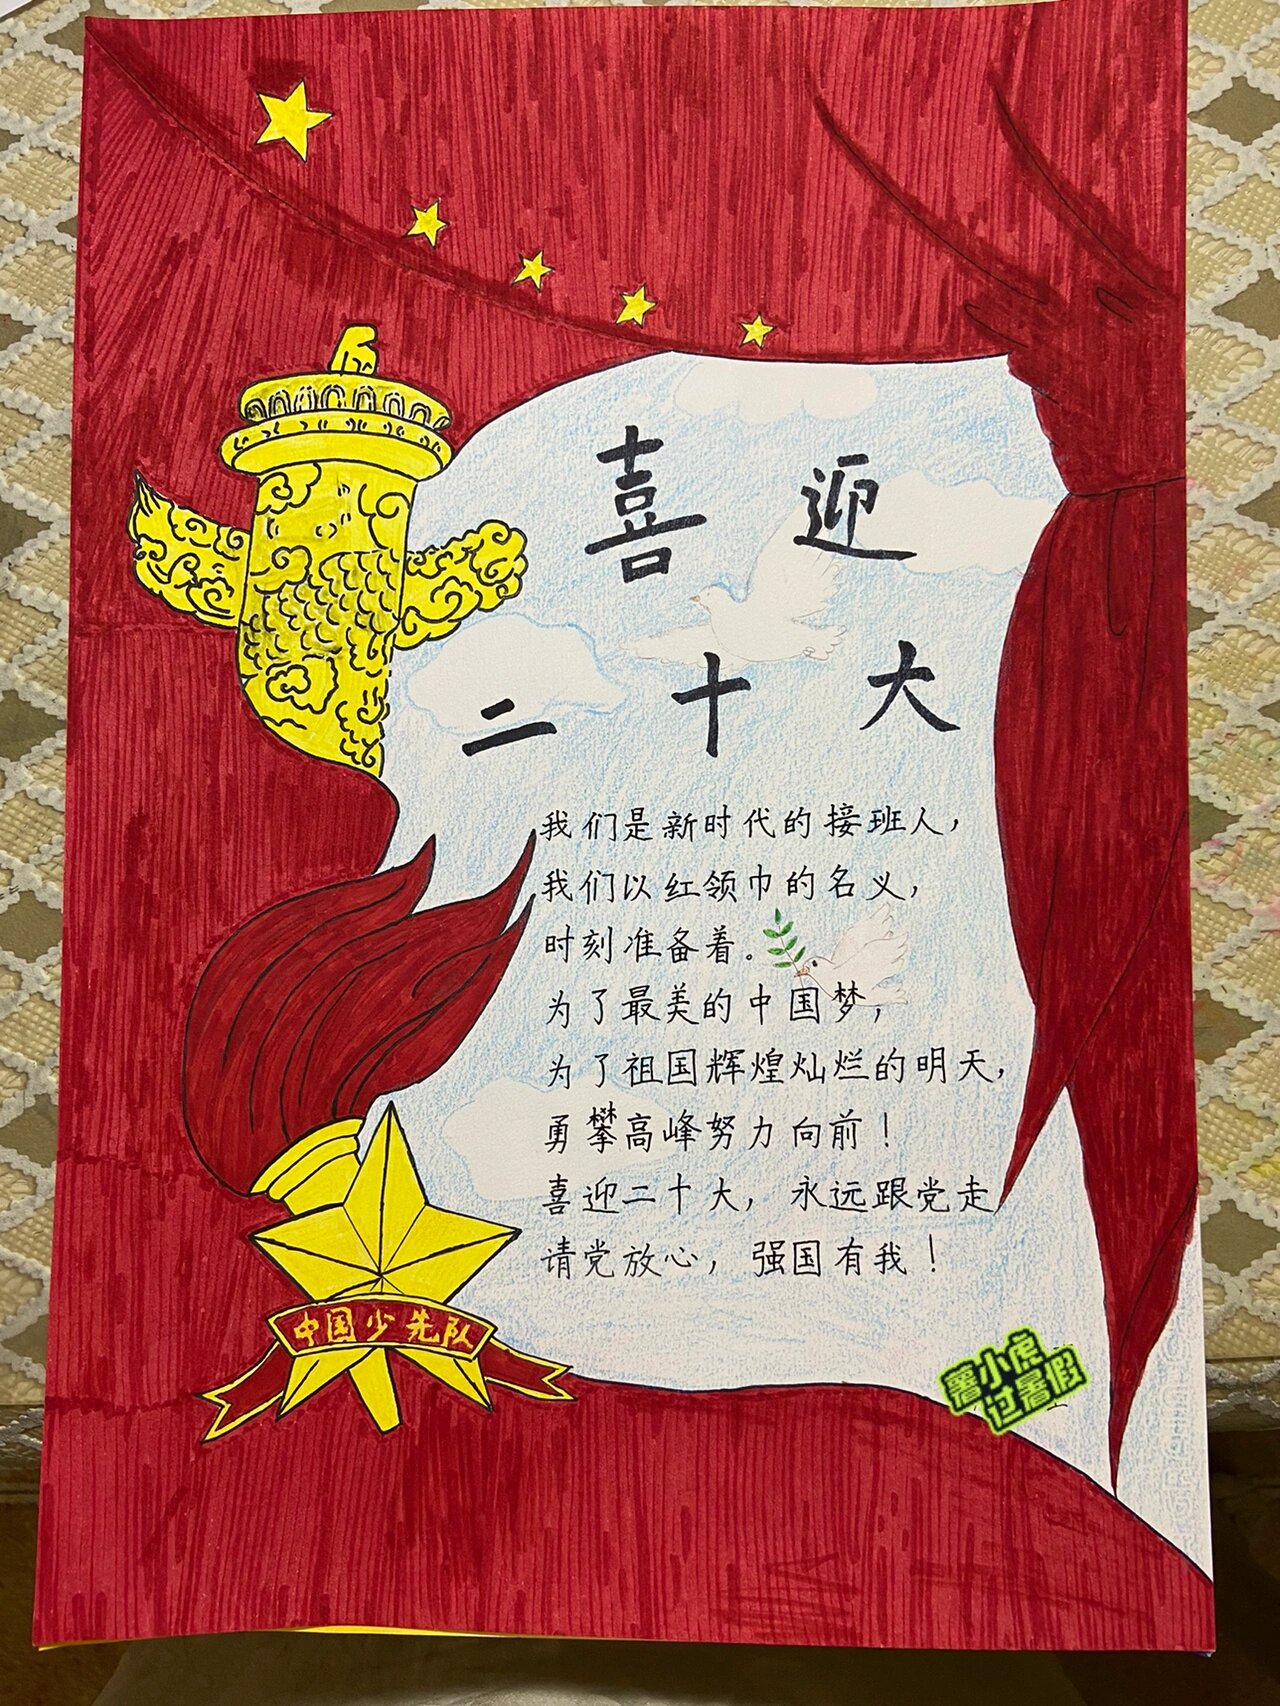 喜迎
二十大
我们是新时代的接班人，
我们以红领巾的名义，
时刻准备着。
为了最美的中国梦，
为了祖国辉煌灿烂的明天，
勇攀高峰努力向前！
喜迎二十大，永远跟党走
请党放心，强国有我！
中国少先队
薯小虎
过暑假